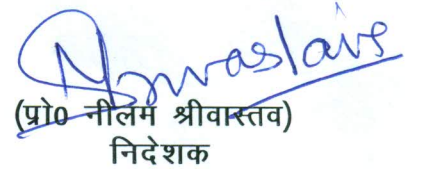 (प्रो0 नीलम श्रीवास्तव)
निदेशक